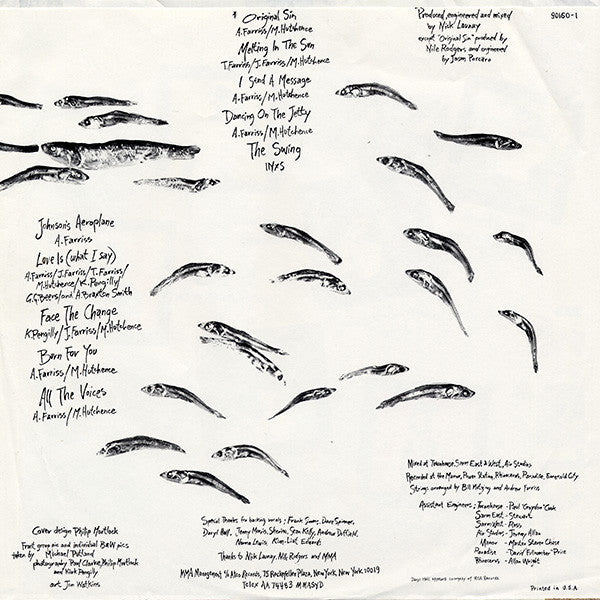 * Original Sin
A. Farriss/M. Hutchence
Melting In The Sun
T. Farriss/J. Farriss/M. Hutchence
I Send A Message
A. Farriss/M. Hutchence
Dancing On The Jetty
A. Farriss/M. Hutchence
The Swing
INXS
"Produced, engineered and mixed
by Nick Launay
except "Original Sin" produced by
Nile Rodgers, and engineered
by Jason Corsaro
90160-1
Johnson's Aeroplane
A. Farriss
Love Is (what I say)
A. Farriss/J. Farriss/T. Farriss/
M. Hutchence/K. Pengilly/
G.G. Beers/and A. Braxton Smith
Face The Change
K. Pengilly/J. Farriss/M. Hutchence
Burn For You
A. Farriss/M. Hutchence
All The Voices
A. Farriss/M. Hutchence
Mixed at Townhouse, Sarm East & West, Air Studios
Recorded at the Manor, Power Station, Rhinoceros, Paradise, Emerald City
Strings arranged by Bill Motzing and Andrew Farriss
Assistant Engineers; Townhouse - Paul 'Croydon' Cook
Sarm East - Stewart
Sarm West - Ross
Air Studios - Jeremy Allom
Manor - Martin Steven Chase
Paradise - David 'Filtnumber' Price
Rhinoceros - Allan Wright
Cover design Philip Mortlock
Front group pic and individual B&W pics
taken by Michael Putland
photography Paul Clarke, Philip Mortlock
and Kirk Pengilly
art Jim Watkins
Special Thanks for backing vocals - Frank Simms, Dave Spinner,
Daryl Hall, Jenny Morris, Sherine, Sean Kelly, Andrew Duffield,
Norma Lewis, Kim-Lisel, Edwards
Thanks to Nick Launay, Nile Rodgers and MMA
MMA Management % Atco Records, 75 Rockefeller Plaza, New York, New York 10019
Telex AA 74453 MMASYD
Daryl Hall appears courtesy of RCA Records
Printed in U.S.A